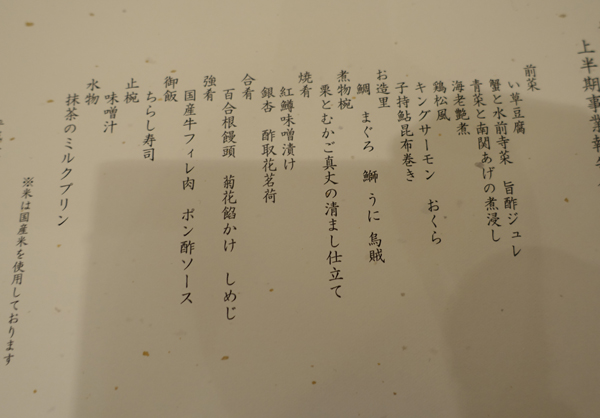 上半期事業報告
前菜
い草豆腐
蟹と水前寺菜 旨酢ジュレ
青菜と南関あげの煮浸し
海老艶煮
鶏松風
キングサーモン おくら
子持鮎昆布巻き
お造里
鯛 まぐろ 鰤 うに 烏賊
煮物椀
栗とむかご真丈の清まし仕立て
焼肴
紅鱒味噌漬け
銀杏 酢取花茗荷
合肴
百合根饅頭 菊花餡かけ しめじ
強肴
国産牛フィレ肉 ポン酢ソース
御飯
ちらし寿司
止椀
味噌汁
水物
抹茶のミルクプリン
※米は国産米を使用しております